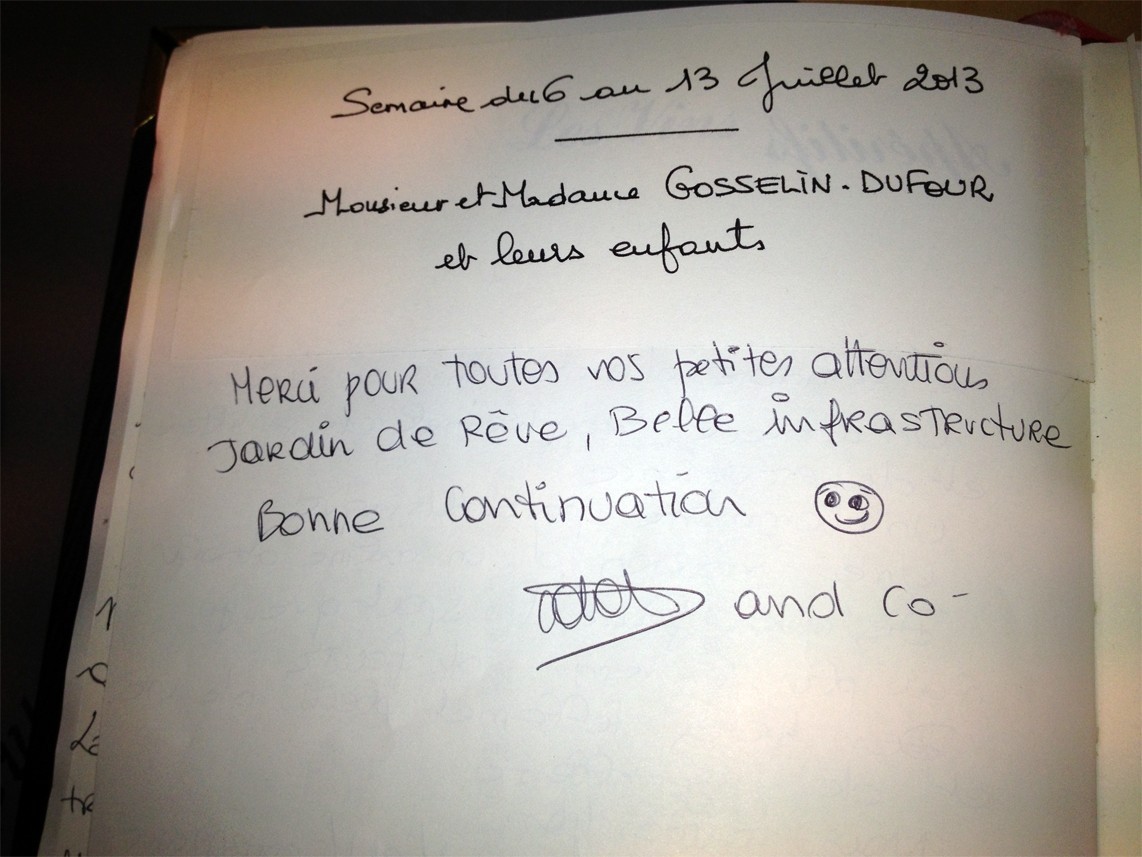 Semaine du 6 au 13 Juillet 2013
Monsieur et Madame GOSSELIN-DUFOUR
et leurs enfants
Merci pour toutes vos petites attentions
Jardin de Rêve, Belle infrastructure
Bonne Continuation
and Co-